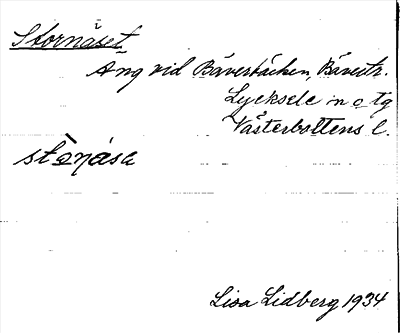 Stornäset
Äng vid Bäverbäcken, Bävertr.
Lycksele in o tg
Västerbottens l.
stònása
Lisa Lidberg 1934